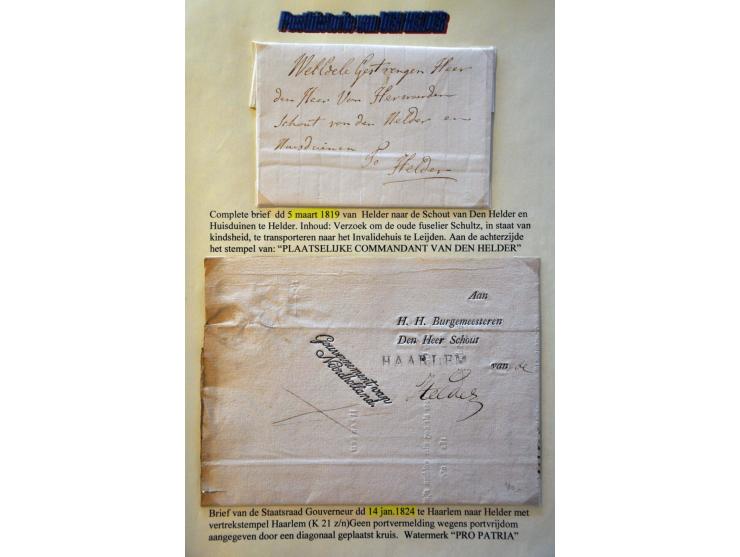 Posthistorie van DEN HELDER
WelEdele Gestrengen Heer
den Heer Van Herwerden
Schout van den Helder en
Huisduinen
To
Helder
Complete brief dd 5 maart 1819 van Helder naar de Schout van Den Helder en
Huisduinen te Helder. Inhoud: Verzoek om de oude fuselier Schultz, in staat van
kindsheid, te transporteren naar het Invalidehuis te Leijden. Aan de achterzijde
het stempel van: “PLAATSELIJKE COMMANDANT VAN DEN HELDER”
Aan
H. H. Burgemeesteren
Den Heer Schout
Gouvernement van
Noordholland.
HAARLEM
van de
Helder
40,-
Brief van de Staatsraad Gouverneur dd 14 jan.1824 te Haarlem naar Helder met
vertrekstempel Haarlem (K 21 z/n)Geen portvermelding wegens portvrijdom
aangegeven door een diagonaal geplaatst kruis. Watermerk “PRO PATRIA”